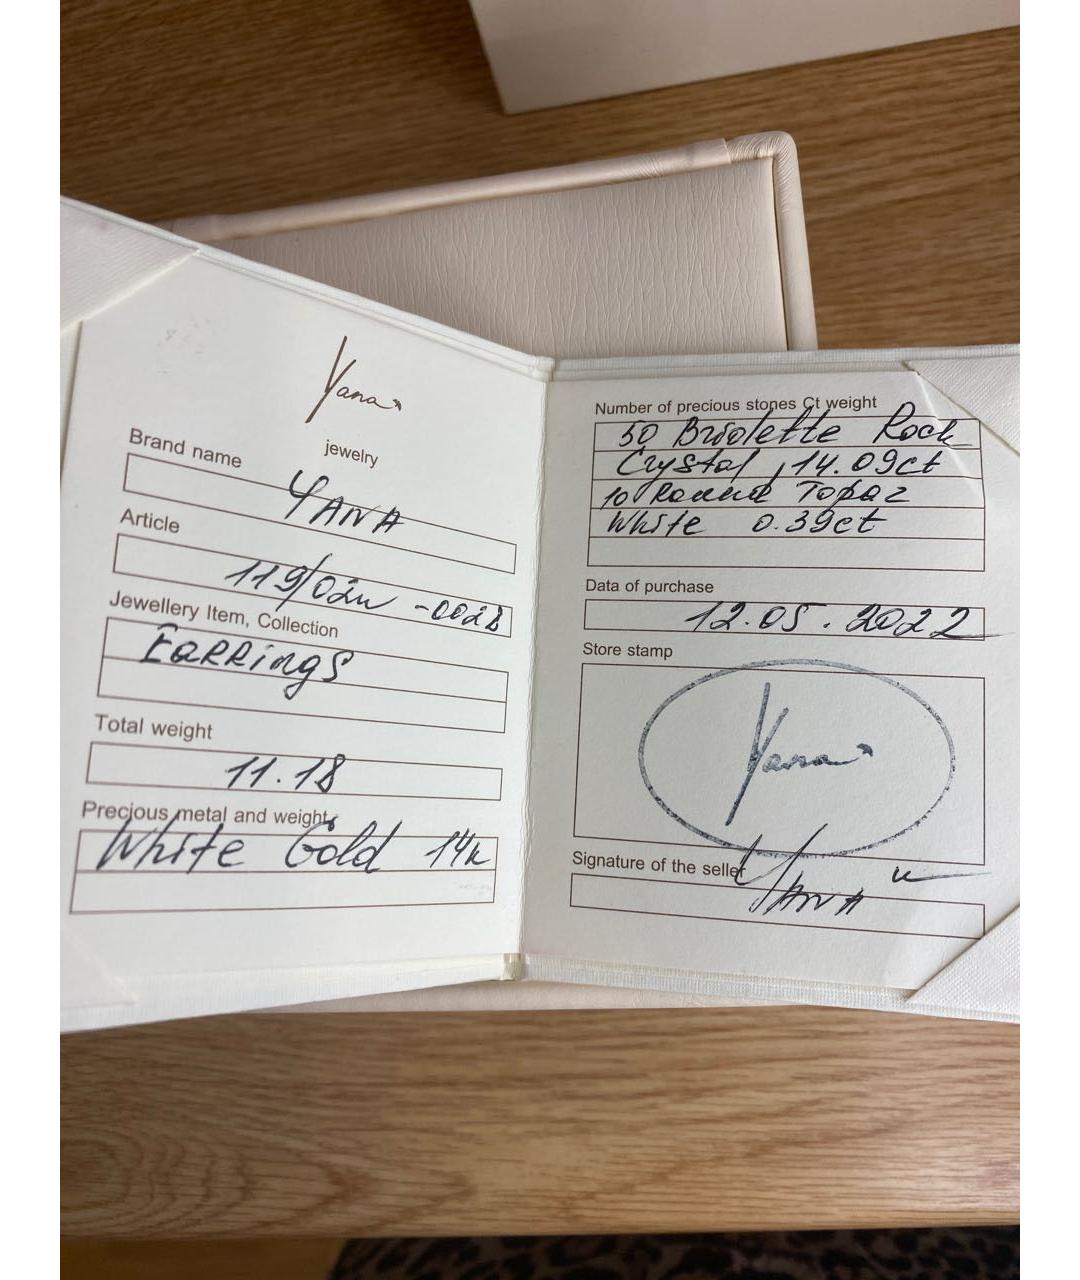 Yana
jewelry
Brand name
YANA
Article
Jewellery Item, Collection
EaRRings
Total weight
11.18
Precious metal and weight
White Gold 14k
Number of precious stones Ct weight
50 Briolette Rock
Crystal, 14.09ct
10 Round Topaz
White 0.39ct
Data of purchase
12.05.2022
Store stamp
Yana
Signature of the seller
YANA